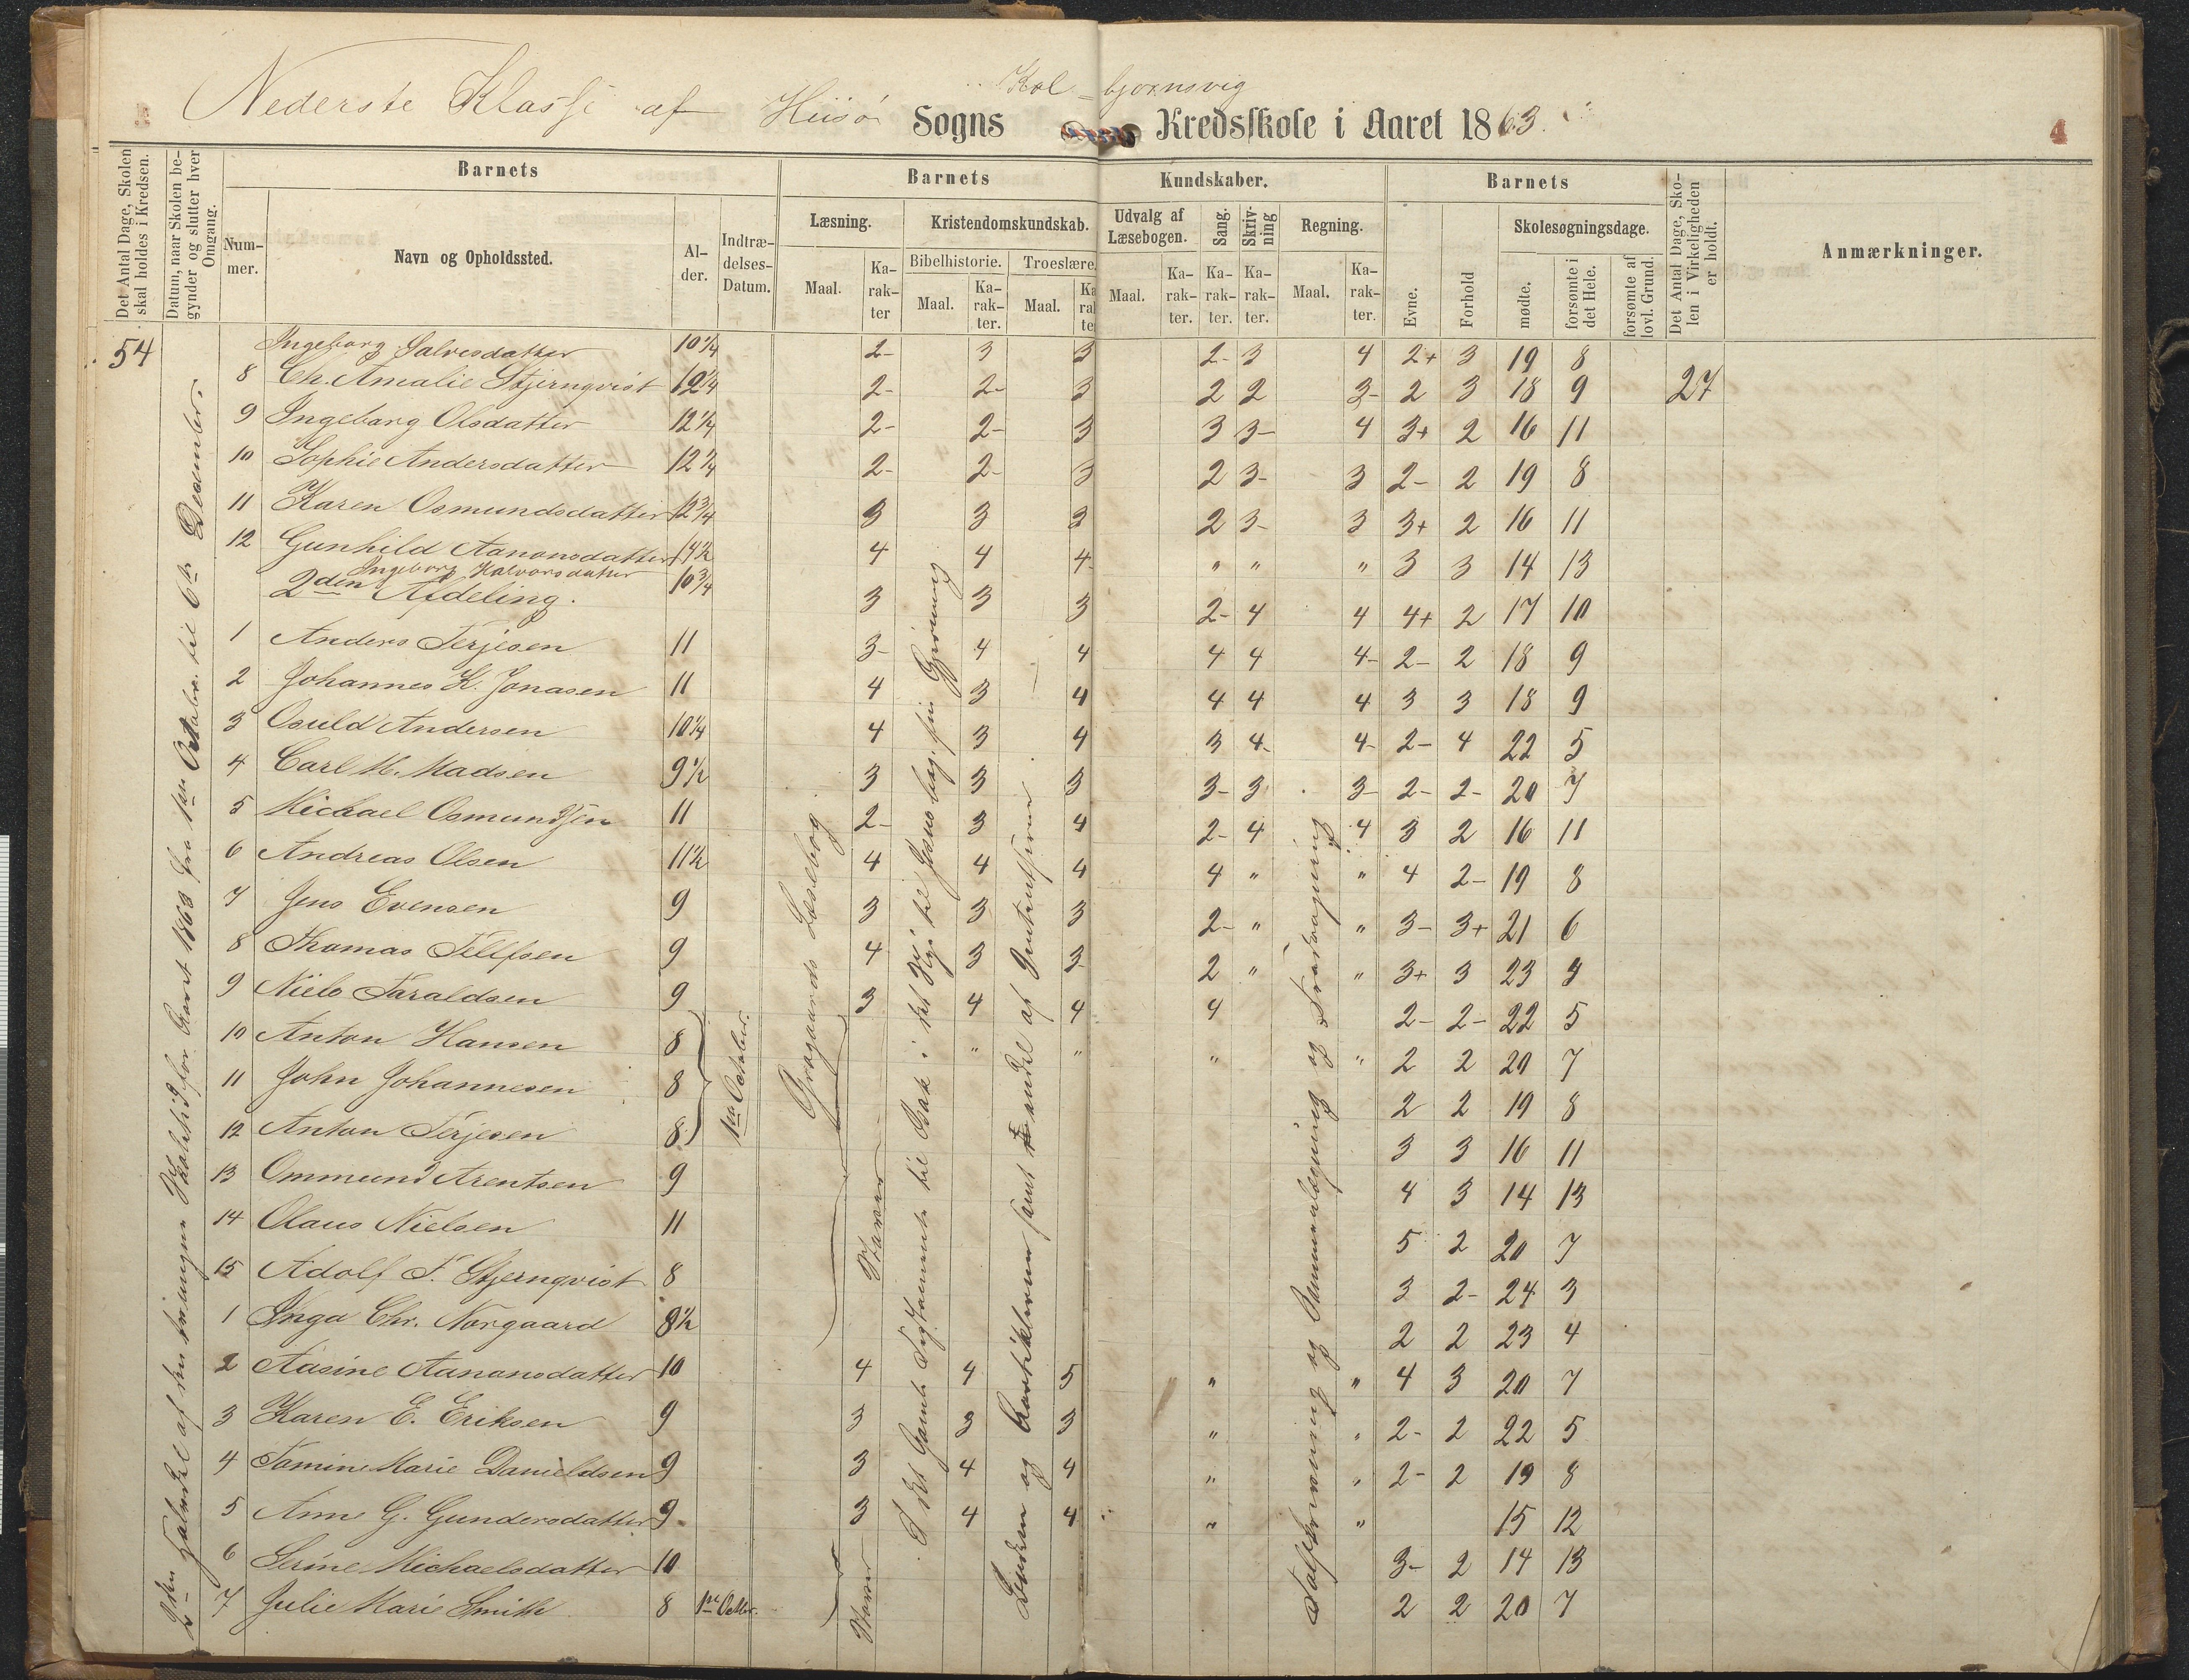 Kol=bjørnsvig
Nederste Klasse af Hiisø Sogns Kredsskole i Aaret 1863.
4
Det Antal Dage, Skolen skal holdes i Kredsen.
Datum, naar Skolen begynder og slutter hver Omgang.
Barnets
Barnets Kundskaber.
Barnets
Det Antal Dage, Skolen i Virkeligheden er holdt.
Anmærkninger.
Nummer.
Navn og Opholdssted.
Alder.
Indtrædelses-Datum.
Læsning. Kristendomskundskab. Udvalg af Læsebogen. Sang. Skrivning Regning.
Bibelhistorie. Troeslære.
Maal. Karakter Maal. Karakter. Maal. Karakter Maal. Karakter. Karakter. Karakter. Maal. Karakter.
Evne. Forhold Skolesøgningsdage. mødte. forsømte i det Hele. forsømte af lovl. Grund.
54 Ingeborg Salvesdatter 10 1/4 2- 3 3 2- 3 4 2+ 3 19 8
8 Ch. Amalie Stjernqvist 12 1/4 2- 2- 3 2 2 3- 2 3 18 9 27
9 Ingeborg Olsdatter 12 1/4 2- 2- 3 3 3- 4 3+ 2 16 11
10 Sophie Andersdatter 12 1/4 2- 2- 3 2 3- 3 2- 2 19 8
11 Karen Osmundsdatter 12 3/4 3 3 3 2 3- 3 3+ 2 16 11
12 Gunhild Aanonsdatter 14 1/2 4 4 4- " " " 3 3 14 13
Ingeborg Halvorsdatter 10 3/4 3 3 3 2- 4 4 4+ 2 17 10
2den Afdeling.
1 Anders Terjesen 11 3- 4 4 4 4 4- 2- 2 18 9
2 Johannes K. Jonasen 11 4 3 4 4 4 4 3 3 18 9
3 Osuld Andersen 10 1/4 4 3 4 3 4- 4- 2- 4 22 5
4 Carl M. Madsen 9 1/2 3 3 3 3- 3 3- 2- 2- 20 7
5 Michael Osmundsen 11 2- 3 4 2- 4 4 3 2 16 11
6 Andreas Olsen 11 1/2 4 4 4 4 " " 4 2- 19 8
7 Jens Evensen 9 3 3 3 2- " " 3- 3+ 21 6
8 Thomas Tellefsen 9 4 3 3- 2 " " 3+ 3 23 4
9 Niels Taraldsen 9 3 4 4 4 2- 2- 22 5
10 Anton Hansen 8 " " " " 2 2 20 7
11 John Johannesen 8 2 2 19 8
12 Anton Terjesen 8 3 3 16 11
13 Ommund Arentsen 9 4 3 14 13
14 Olaus Nielsen 11 5 2 20 7
15 Adolf F. Stjernqvist 8 3 2- 24 3
1 Inga Chr. Norgaard 8 1/2 2 2 23 4
2 Aasine Aanonsdatter 10 4 4 5 " " 4 3 20 7
3 Karen E. Eriksen 9 3 3 3 " " 2- 2 22 5
4 Tomine Marie Danieldsen 9 3 4 4 " " 2- 2 19 8
5 Anne G. Gundersdatter 9 3 4 4 " " 15 12
6 Serine Michaelsdatter 10 3- 2 14 13
7 Julie Marie Smith 8 1ste Octbr. 2 2 20 7
2den Halvdel af den tvungne Skoletid for Aaret 1863 fra 1ste Octobr. til 6te December.
1ste October.
Graagaards Læsebog
Staver
Staver
I det Gamle Testamente til Isak i det Nye til Jesus bog. sin Gjerning
Loven og Troartiklerne samt
Talskrivning og Sammenlægning og Fradragning